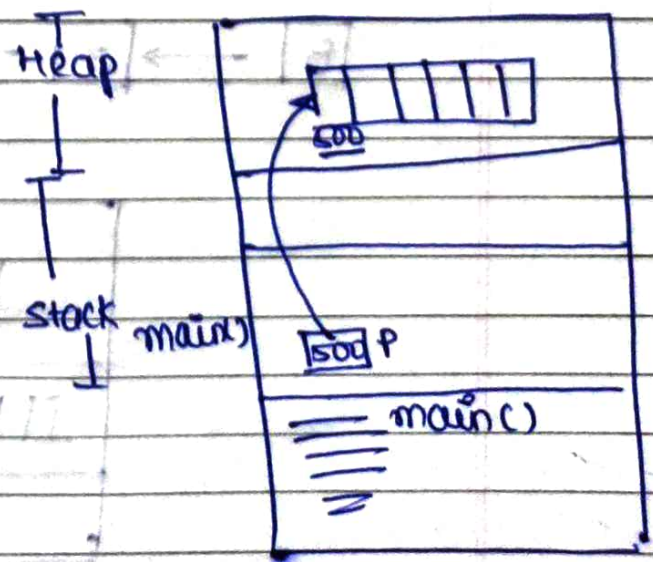 Heap
500
Stack
main()
500 P
main()